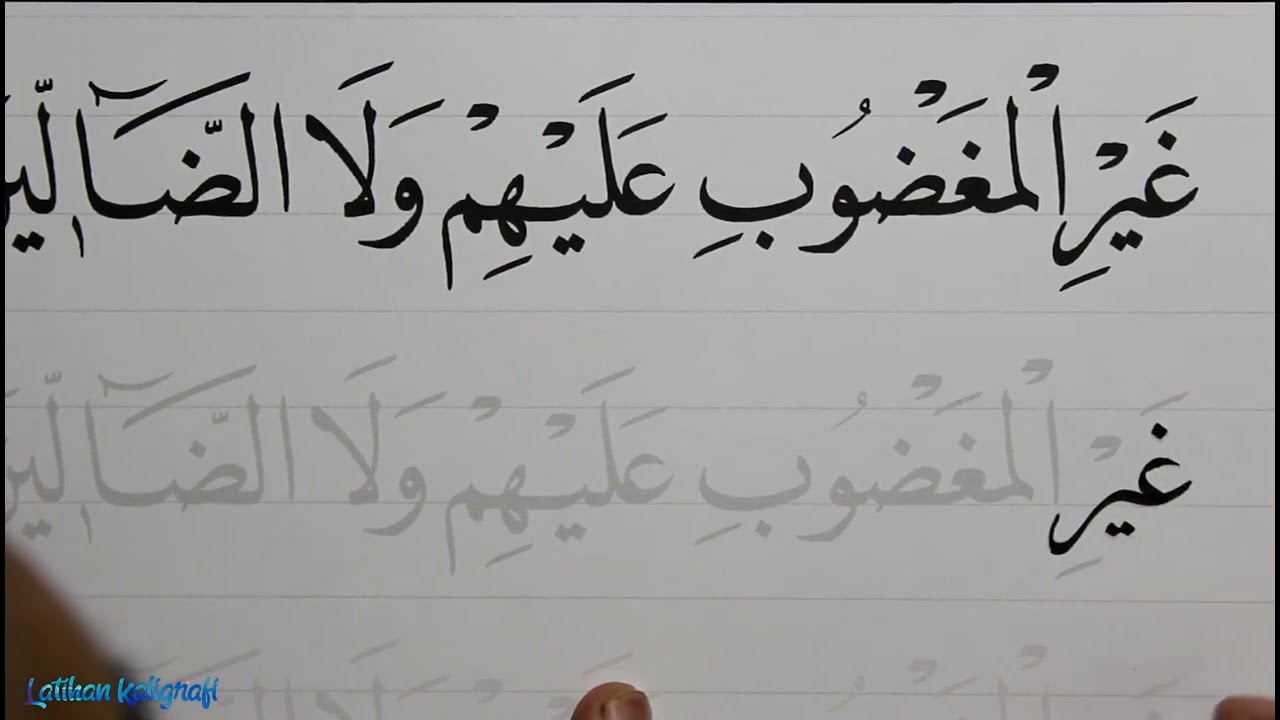 غَيْرِ الْمَغْضُوبِ عَلَيْهِمْ وَلَا الضَّآلِّين
غَيْرِ الْمَغْضُوبِ عَلَيْهِمْ وَلَا الضَّآلِّين
Latihan Kaligrafi